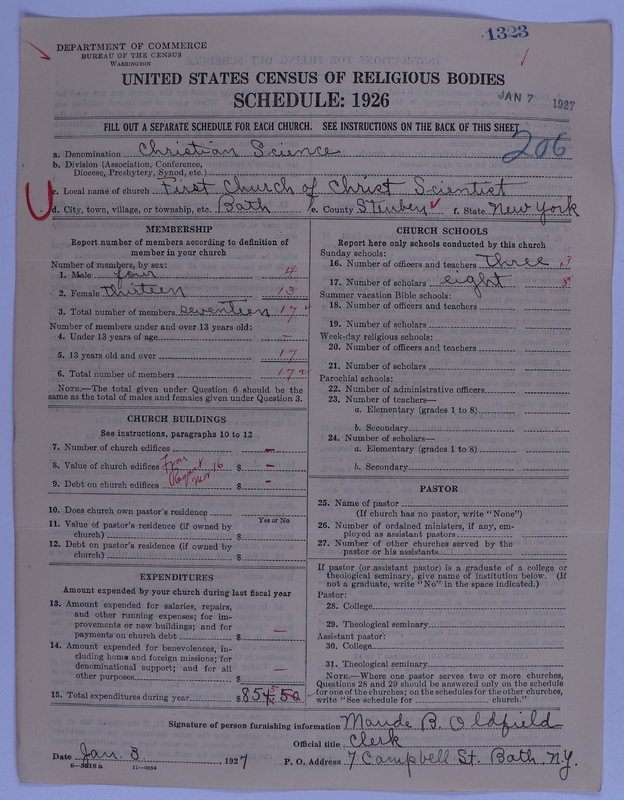 1323
DEPARTMENT OF COMMERCE
BUREAU OF THE CENSUS
WASHINGTON
UNITED STATES CENSUS OF RELIGIOUS BODIES
SCHEDULE: 1926
JAN 7 1927
FILL OUT A SEPARATE SCHEDULE FOR EACH CHURCH. SEE INSTRUCTIONS ON THE BACK OF THIS SHEET
206
a. Denomination Christian Science
b. Division (Association, Conference, Diocese, Presbytery, Synod, etc.)
c. Local name of church First Church of Christ Scientist
d. City, town, village, or township, etc. Bath e. County Steuben f. State New York
MEMBERSHIP
Report number of members according to definition of
member in your church
Number of members, by sex:
1. Male four 4
2. Female Thirteen 13
3. Total number of members seventeen 17
Number of members under and over 13 years old:
4. Under 13 years of age –
5. 13 years old and over 17
6. Total number of members 17
NOTE.—The total given under Question 6 should be the
same as the total of males and females given under Question 3.
CHURCH BUILDINGS
See instructions, paragraphs 10 to 12
7. Number of church edifices –
8. Value of church edifices $ –
9. Debt on church edifices $ –
10. Does church own pastor's residence
Yes or No
11. Value of pastor's residence (if owned by
church) $
12. Debt on pastor's residence (if owned by
church) $
EXPENDITURES
Amount expended by your church during last fiscal year
13. Amount expended for salaries, repairs,
and other running expenses; for im-
provements or new buildings; and for
payments on church debt $ —
14. Amount expended for benevolences, in-
cluding home and foreign missions; for
denominational support; and for all
other purposes $ —
15. Total expenditures during year $ 854.50
CHURCH SCHOOLS
Report here only schools conducted by this church
Sunday schools:
16. Number of officers and teachers Three 3
17. Number of scholars eight 8
Summer vacation Bible schools:
18. Number of officers and teachers
19. Number of scholars
Week-day religious schools:
20. Number of officers and teachers
21. Number of scholars
Parochial schools:
22. Number of administrative officers
23. Number of teachers—
a. Elementary (grades 1 to 8)
b. Secondary
24. Number of scholars—
a. Elementary (grades 1 to 8)
b. Secondary
PASTOR
25. Name of pastor
(If church has no pastor, write "None")
26. Number of ordained ministers, if any, em-
ployed as assistant pastors
27. Number of other churches served by the
pastor or his assistants
If pastor (or assistant pastor) is a graduate of a college or
theological seminary, give name of institution below. (If
not a graduate, write "No" in the space indicated.)
Pastor:
28. College
29. Theological seminary
Assistant pastor:
30. College
31. Theological seminary
NOTE.—Where one pastor serves two or more churches,
Questions 28 and 29 should be answered only on the schedule
for one of the churches; on the schedules for the other churches,
write "See schedule for church."
Signature of person furnishing information Maude B. Oldfield
Official title Clerk
Date Jan. 3, 1927 P. O. Address 7 Campbell St. Bath, N.Y.
11—9054